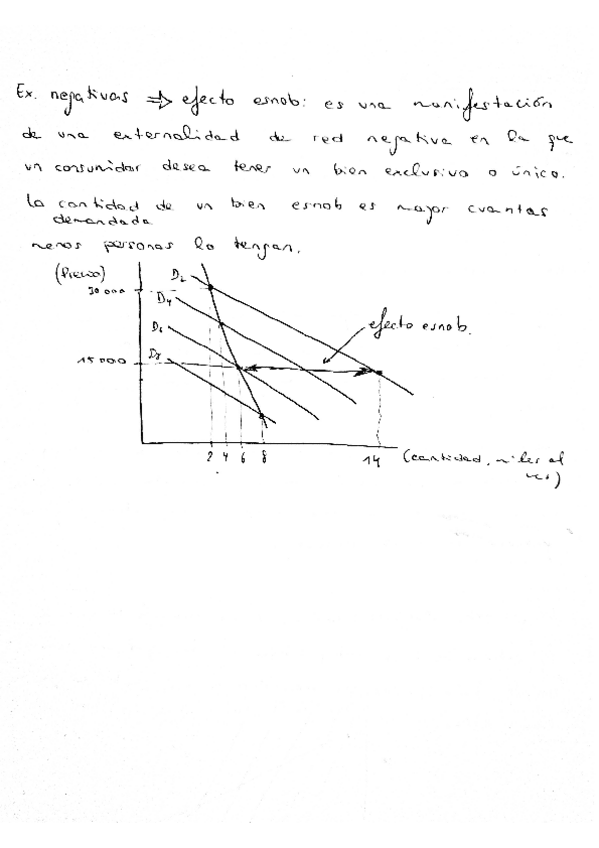 Ex. negativas ⇒ efecto esnob: es una manifestación
de una externalidad de red negativa en la que
un consumidor desea tener un bien exclusivo o único.
La cantidad de un bien esnob es mayor cuantas
demandada
menos personas lo tengan.
(Precio)
D2
30 000
D4
efecto esnob.
D6
15 000
D8
2 4 6 8
14
(cantidad, miles al
mes)